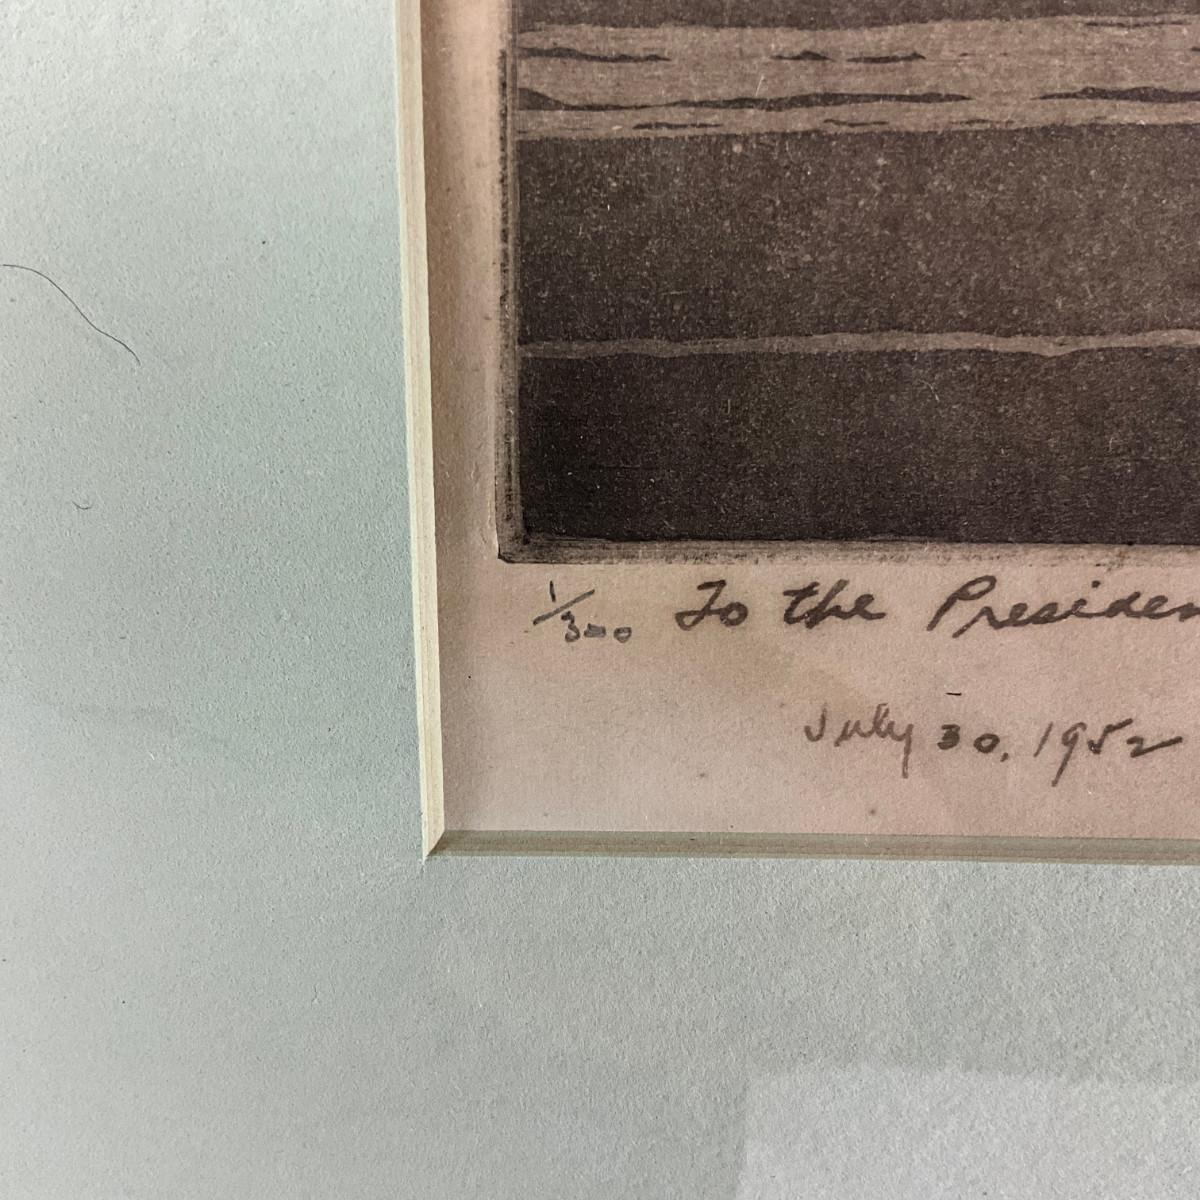 1/300 To the Presiden
July 30, 1952